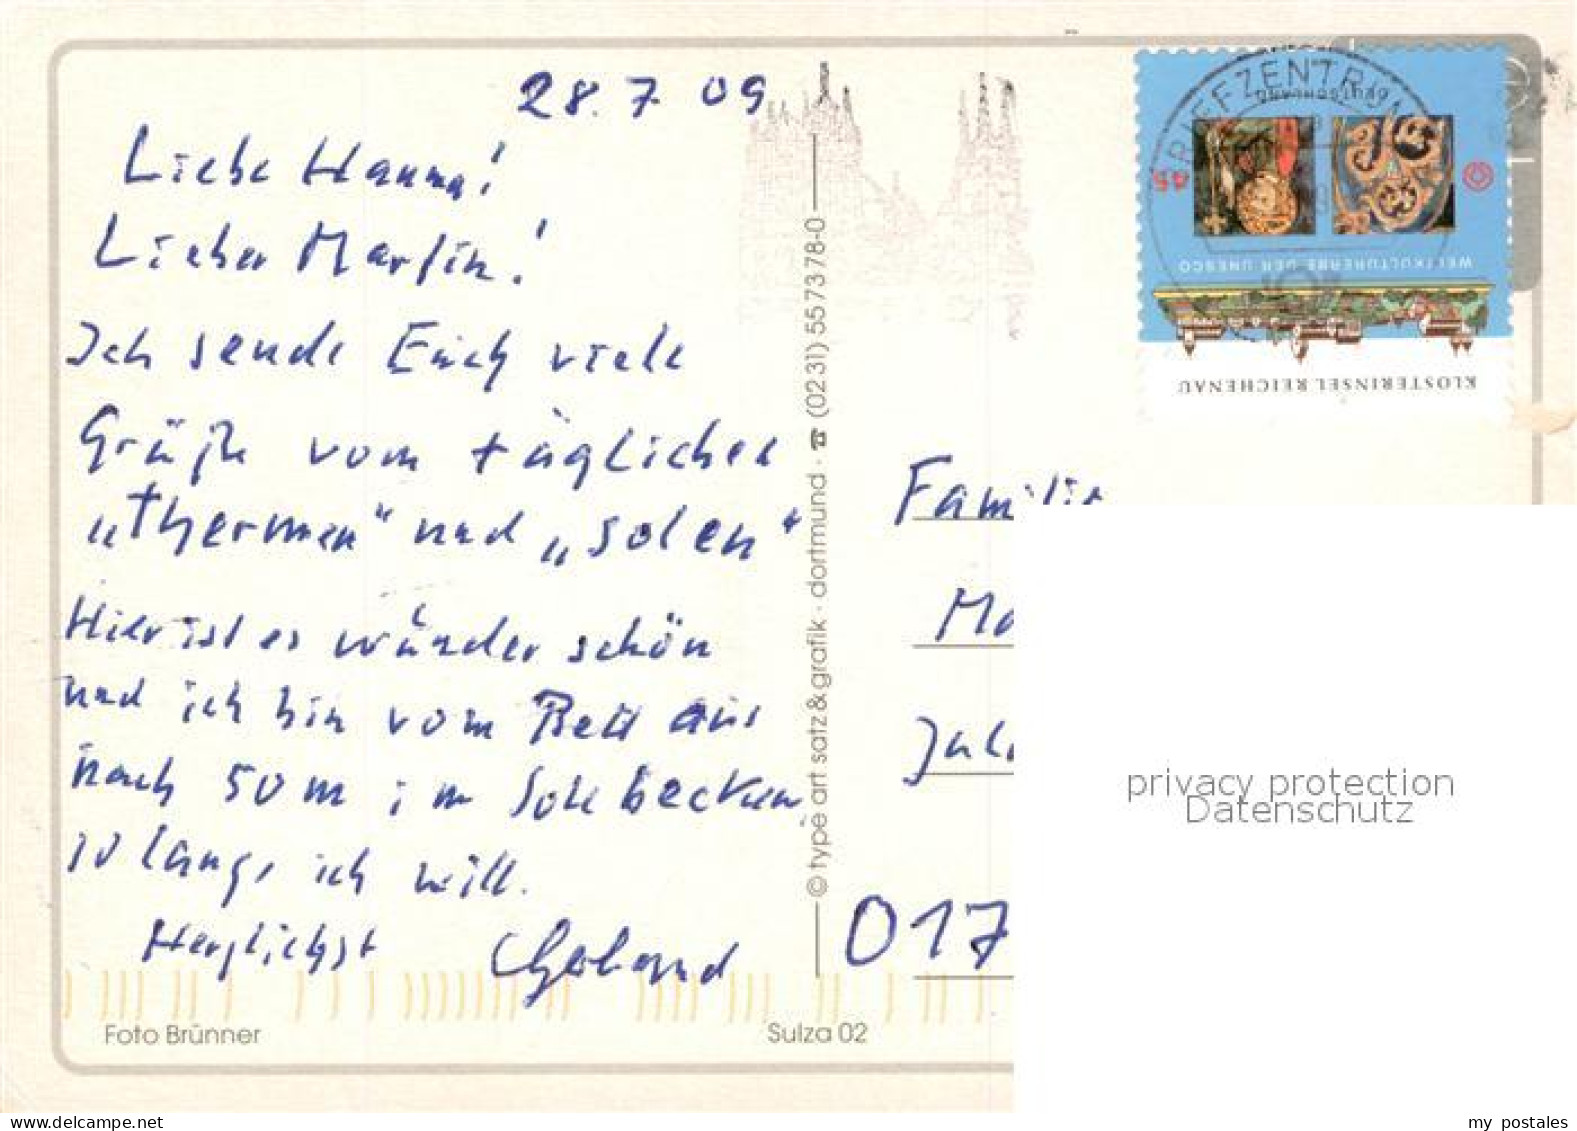 28.7.09
Liebe Hanna!
Lieber Martin!
Ich sende Euch viele
Grüße vom täglichen
„Thermen“ und „solen“
Hier ist es wunderschön
und ich bin vom Bett aus
nach 50 m im Solebecken
so lange ich will.
Herzlichst
Foto Brünner
Sulza 02
© type art satz & grafik · dortmund · ☎ (0231) 557378-0
BRIEFZENTRUM
DEUTSCHLAND
45
WELTKULTURERBE DER UNESCO
KLOSTERINSEL REICHENAU
Familie
Ma
017
privacy protection
Datenschutz
my postales